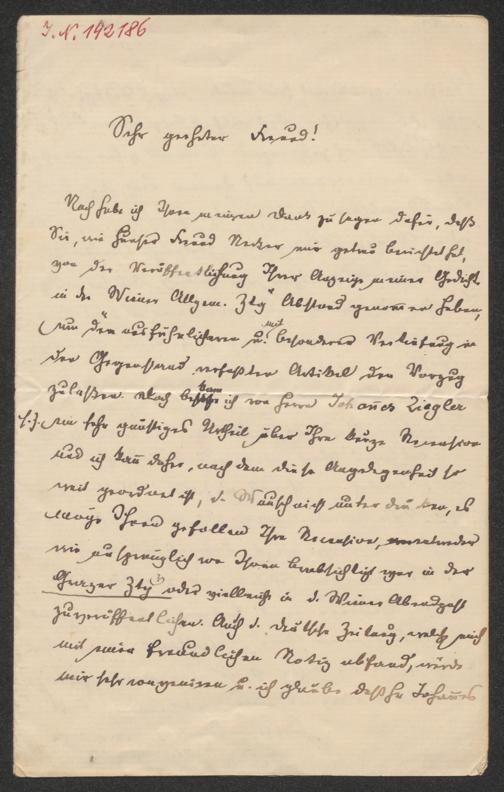 I. N. 142186
Sehr geehrter Freund!
Noch habe ich Ihnen meinen Dank zu sagen dafür, daß
Sie, wie Freund Necker mir getreu berichtet hat,
von der Veröffentlichung Ihrer Anzeige meiner Gedichte
in der Wiener Allgem. Ztg Abstand genommen haben,
um den ausführlicheren u. mit besonderer Vertiefung in
den Gegenstand verfaßten Artikel den Vorzug
zu lassen. Doch bekam ich von Herrn Johannes Ziegler
ein sehr günstiges Urtheil über Ihre kurze Recension
und ich kann daher, nach dem diese Angelegenheit so
weit geordnet ist, d. Wunsch nicht unterdrücken, es
möge Ihnen gefallen Ihre Recension, entweder
wie ursprünglich von Ihnen beabsichtigt war in der
Grazer Ztg oder vielleicht in d. Wiener Abendpost
zu veröffentlichen. Auch d. Deutsche Zeitung, welche mich
mit einer freundlichen Notiz abfand, würde
mir sehr convenieren u. ich glaube daß Hr Johannes